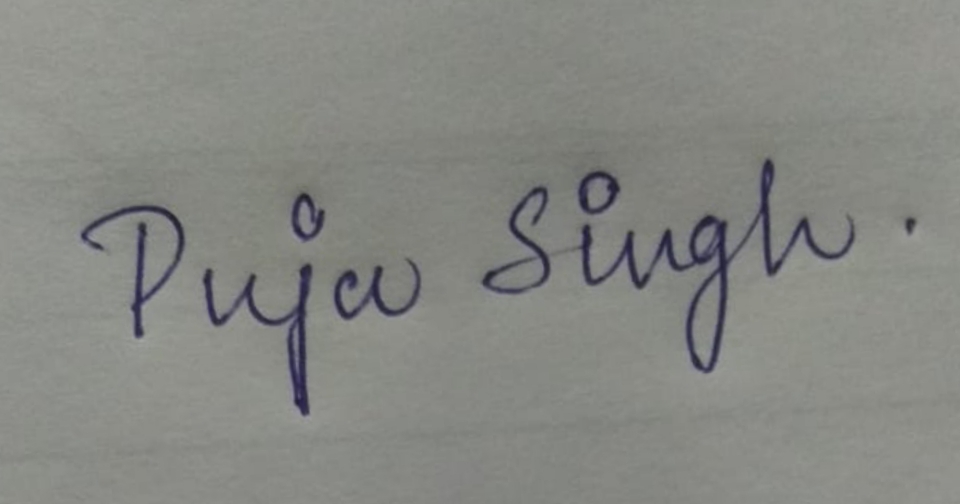 Puja Singh.